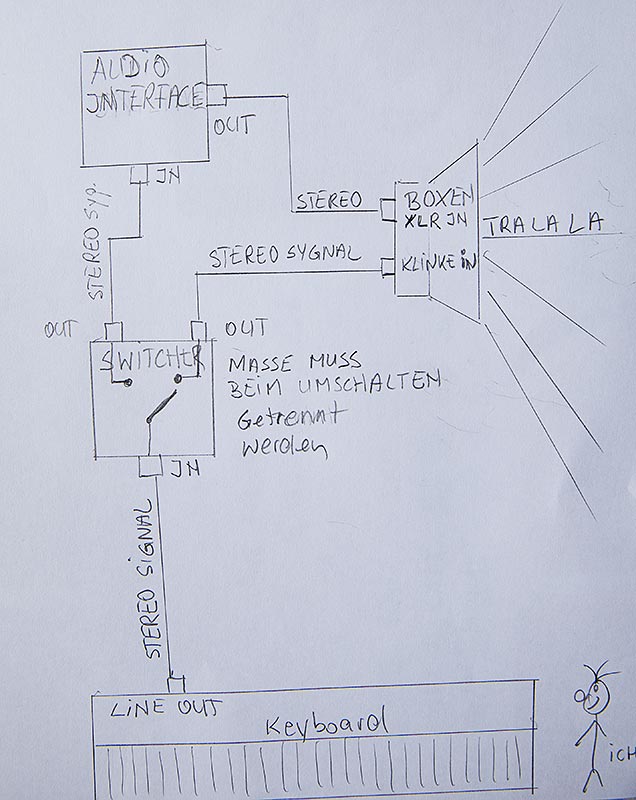 AUDIO
INTERFACE
OUT
IN
STEREO Syg.
STEREO
BOXEN
XLR IN
TRALALA
STEREO SYGNAL
KLINKE IN
OUT
OUT
SWITCHER
MASSE MUSS
BEIM UMSCHALTEN
Getrennt
werden
IN
STEREO SIGNAL
LINE OUT
Keyboard
ICH